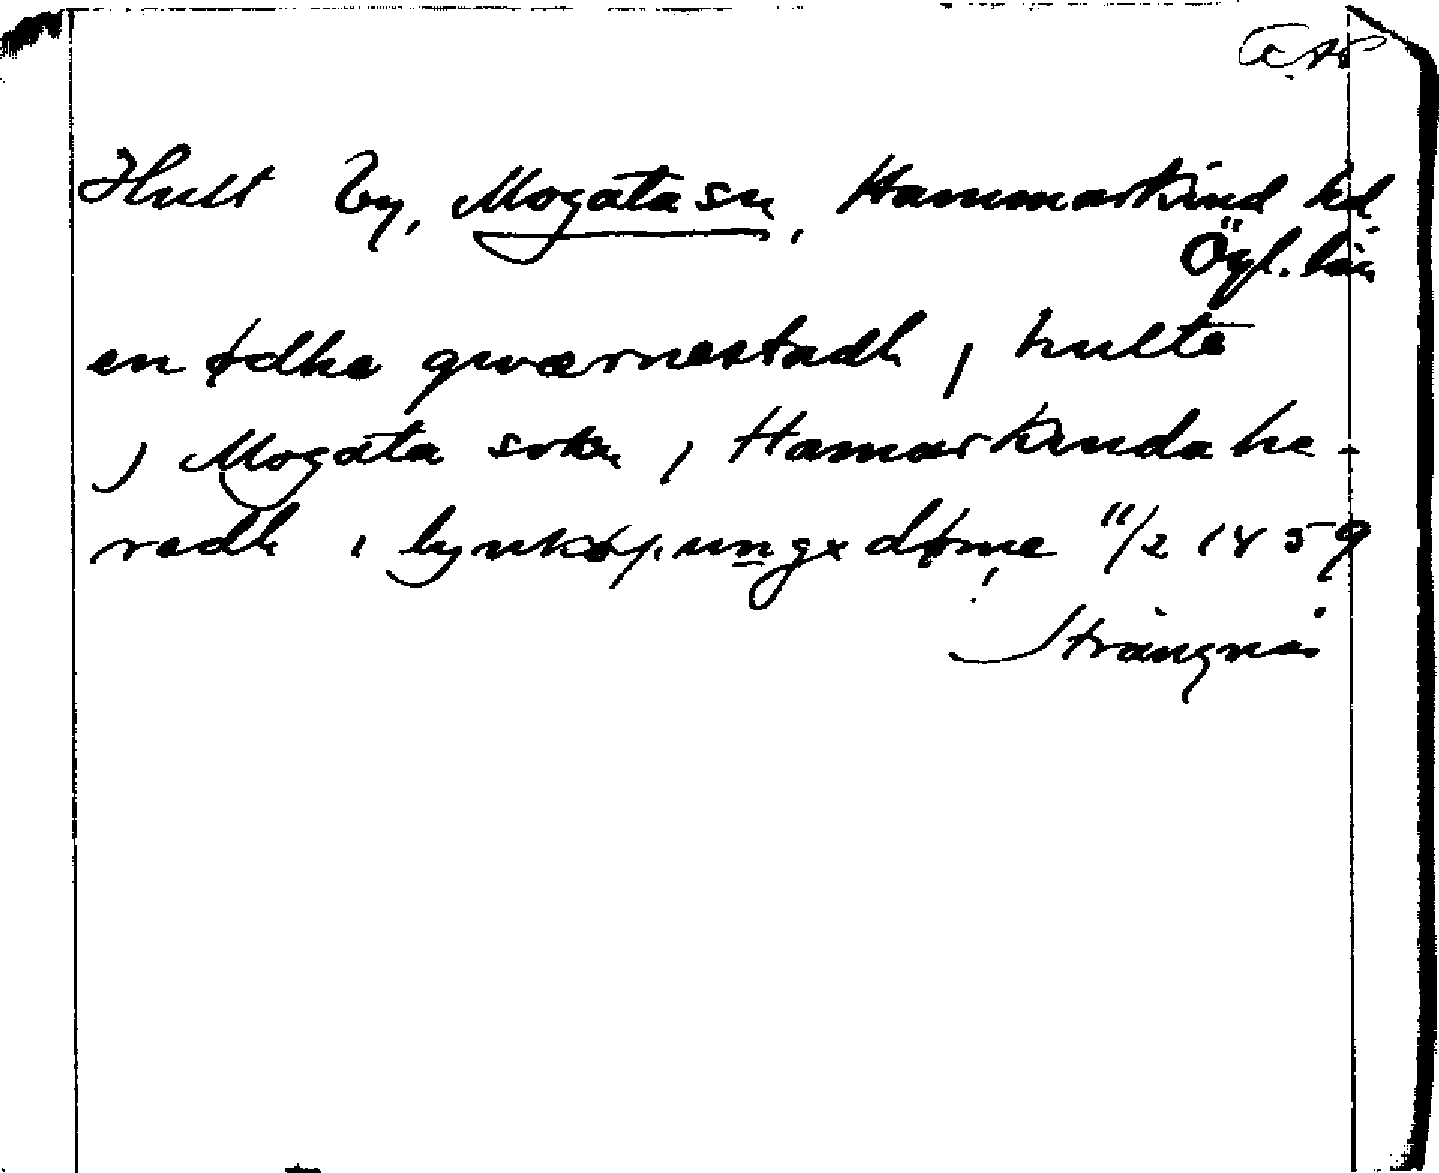 Hult by, Mogata sn, Hammarkind hd
Ögl. län
en ødhe qwærnestadh j hulte
j Mogata sokn j Hamarkinda he-
redh i lynkøpungx døme 11/2 1459
Strängnäs